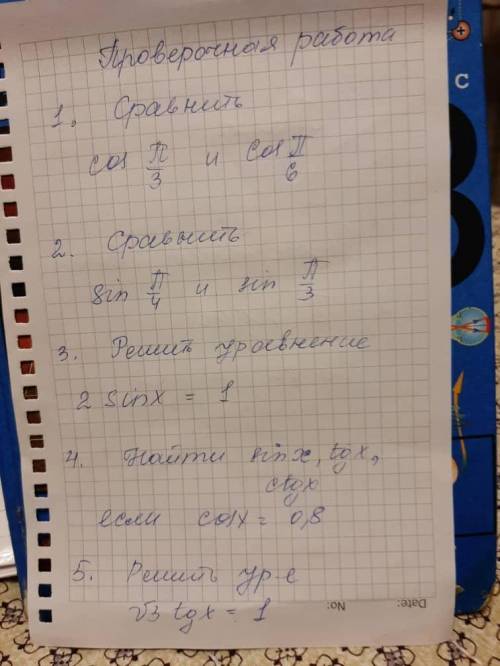 Проверочная работа
1. Сравнить
cos π/3 и cos π/6
2. Сравнить
sin π/4 и sin π/3
3. Решить уравнение
2 sinx = 1
4. Найти sinx, tgx,
ctgx
если cosx = 0,8
5. Решить ур-е
√3 tgx = 1
Date:
No:
C